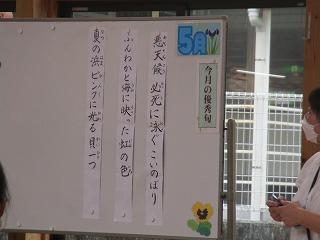 5月
今月の優秀句
悪天候 必死に泳ぐこいのぼり
ふんわかと海に映った虹の色
夏の浜ピンクに光る貝一つ